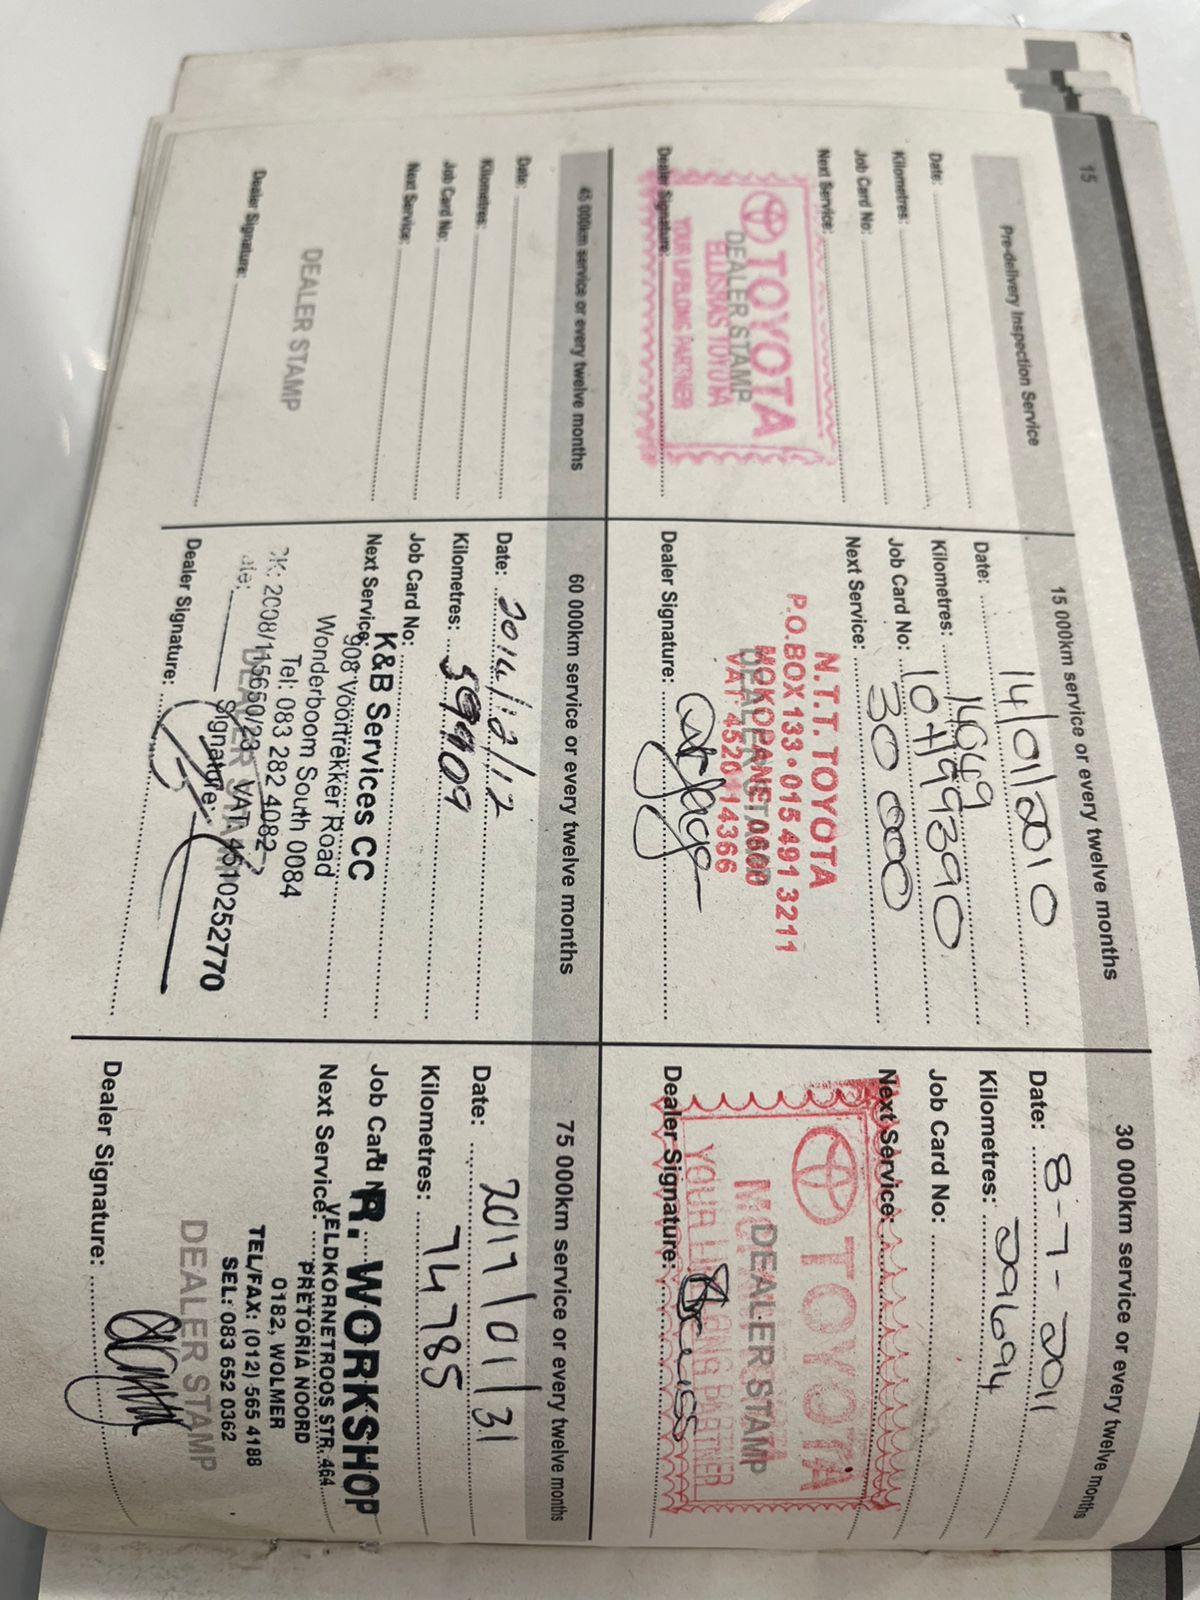 15
Pre-delivery Inspection Service
Date:
Kilometres:
Job Card No:
Next Service:
TOYOTA
DEALER STAMP
ELLISRAS TOYOTA
YOUR LIFELONG PARTNER
Dealer Signature:
15 000km service or every twelve months
Date: 14/01/2010
Kilometres: 14649
Job Card No:
Next Service: 30 000
N.T.T. TOYOTA
P.O.BOX 133 • 015 491 3211
MOKOPANE 0600
DEALER STAMP
VAT: 4520114366
Dealer Signature:
30 000km service or every twelve months
Date: 8-7-2011
Kilometres: 29694
Job Card No:
Next Service:
TOYOTA
DEALER STAMP
YOUR PARTNER
Dealer Signature:
45 000km service or every twelve months
Date:
Kilometres:
Job Card No:
Next Service:
DEALER STAMP
Dealer Signature:
60 000km service or every twelve months
Date: 2014/12/12
Kilometres:
Job Card No:
Next Service:
K&B Services CC
908 Voortrekker Road
Wonderboom South 0084
Tel: 083 282 4082
CK: 2008/115650/23 VAT 4510252770
DEALER STAMP
Signature:
Dealer Signature:
75 000km service or every twelve months
Date: 2017/01/31
Kilometres: 74785
Job Card N
R. WORKSHOP
Next Service:
VELDKORNETROOS STR. 464
PRETORIA NOORD
0182, WOLMER
TEL/FAX: (012) 565 4188
SEL: 083 652 0362
DEALER STAMP
Dealer Signature: